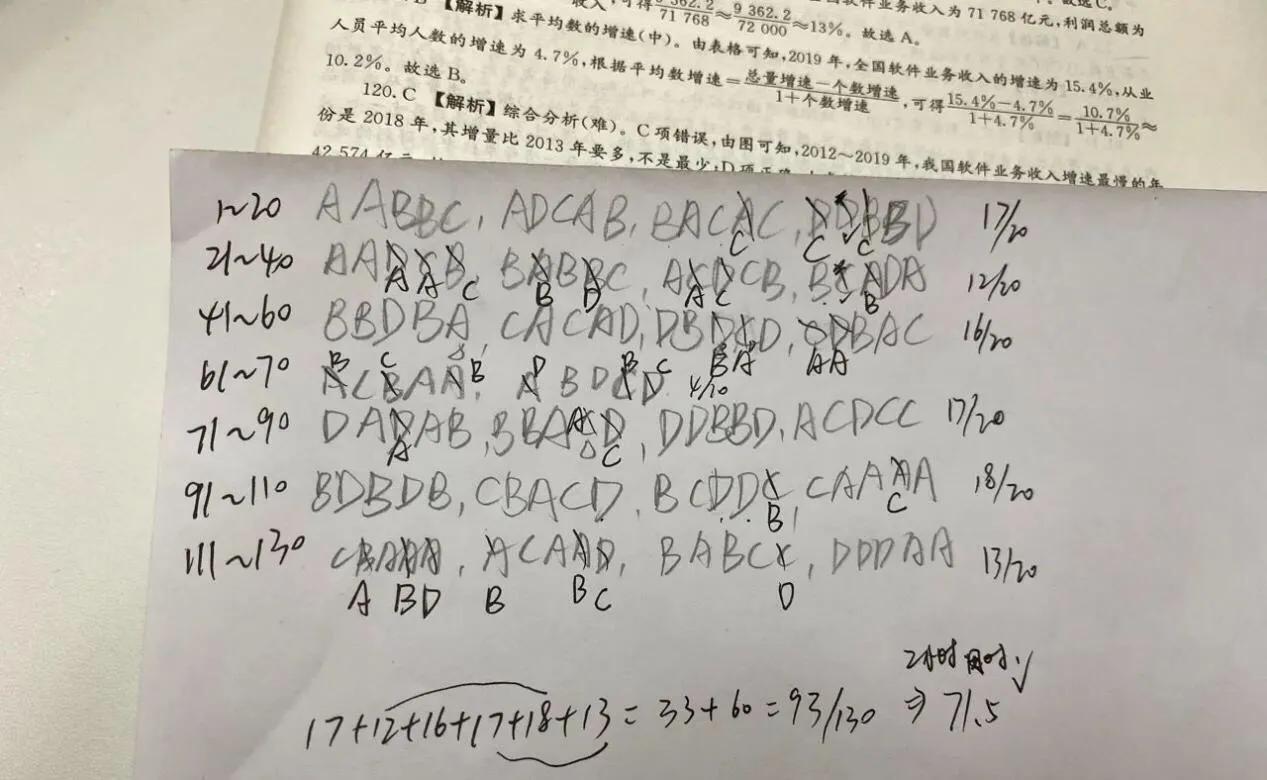 71 768 ≈ 9 362.2 / 72 000 ≈13%。故选 A。 软件业务收入为 71 768 亿元,利润总额为
【解析】求平均数的增速(中)。由表格可知,2019 年,全国软件业务收入的增速为 15.4%,从业
人员平均人数的增速为 4.7%,根据平均数增速=总量增速-个数增速/1+个数增速,可得15.4%-4.7%/1+4.7%=10.7%/1+4.7%≈
10.2%。故选 B。
120. C 【解析】综合分析(难)。C 项错误,由图可知,2012~2019 年,我国软件业务收入增速最慢的年
份是 2018 年,其增量比 2013 年要多,不是最少;D 项正确
42 574 亿元
1~20 AABBC, ADCAB, BACAC, DDBBD 17/20
C C C
21~40 AADCB, BABBC, ACDCB, BCADA 12/20
A A C B D A C B
41~60 BBDBA, CACAD, DBDCD, CDBAC 16/20
B A A A
61~70 ACBAA, ABDCD 4/10
B C B D B C
71~90 DADAB, BBACD, DDBBD, ACDCC 17/20
A C
91~110 BDBDB, CBACD, BCDDC, CAAAA 18/20
B C
111~130 CBAAA, ACAAD, BABCC, DDDAA 13/20
A B D B B C D
2小时用时
17+12+16+17+18+13=33+60=93/130 ⇒ 71.5